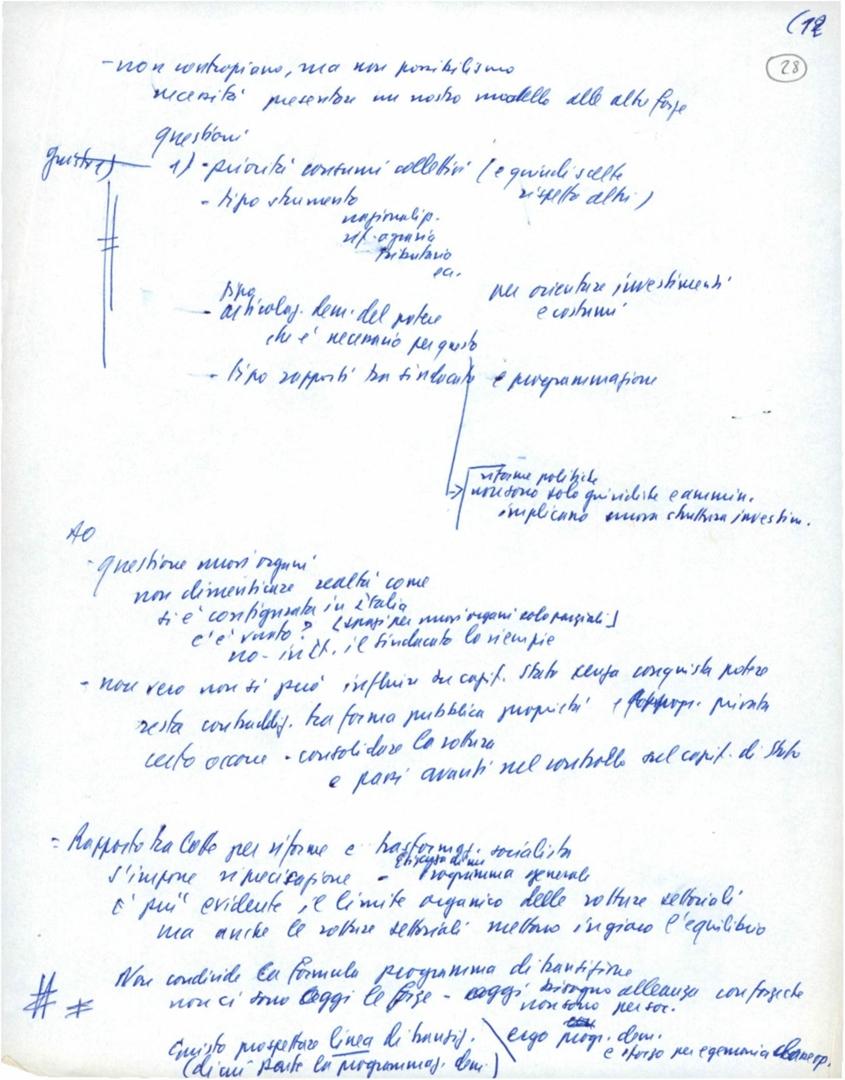 (12
28
- non contropiano, ma non possibilismo
necessità presentare un nostro modello alle altre forze
questioni
1) - priorità consumi collettivi (e quindi scelte
rispetto altri)
- tipo strumento
nazionaliz.
rif. agraria
tributario
ec.
per orientare investimenti
e costumi
- tipo articolaz. dem. del potere
che è necessario per questo
- tipo rapporti tra sindacato e programmazione
riforme politiche
non sono solo giuridiche e ammin.
implicano nuova struttura investim.
AO
- questione nuovi organi
non dimenticare realtà come
si è configurata in Italia
c'è vuoto? [spazi per nuovi organi solo parziali]
no - in It. il sindacato lo riempie
- non vero non si può influire su capit. Stato senza conquista potere
resta contraddiz. tra forma pubblica proprietà e approp. privata
certo occorre - consolidare la rottura
e passi avanti nel controllo sul capit. di Stato
= Rapporto tra lotte per riforme e trasformaz. socialista
s'impone precisazione - Esigenza di un Programma generale
è più evidente il limite organico delle rotture settoriali
ma anche le rotture settoriali mettono in gioco l'equilibrio
Non condivide la formula programma di transizione
non ci sono oggi le forze - oggi bisogno alleanza con forze che
non sono per soc.
Giusto prospettare linea di transiz. ergo progr. dem.
(di cui parte la programmaz. dem.) e sforzo per egemonia